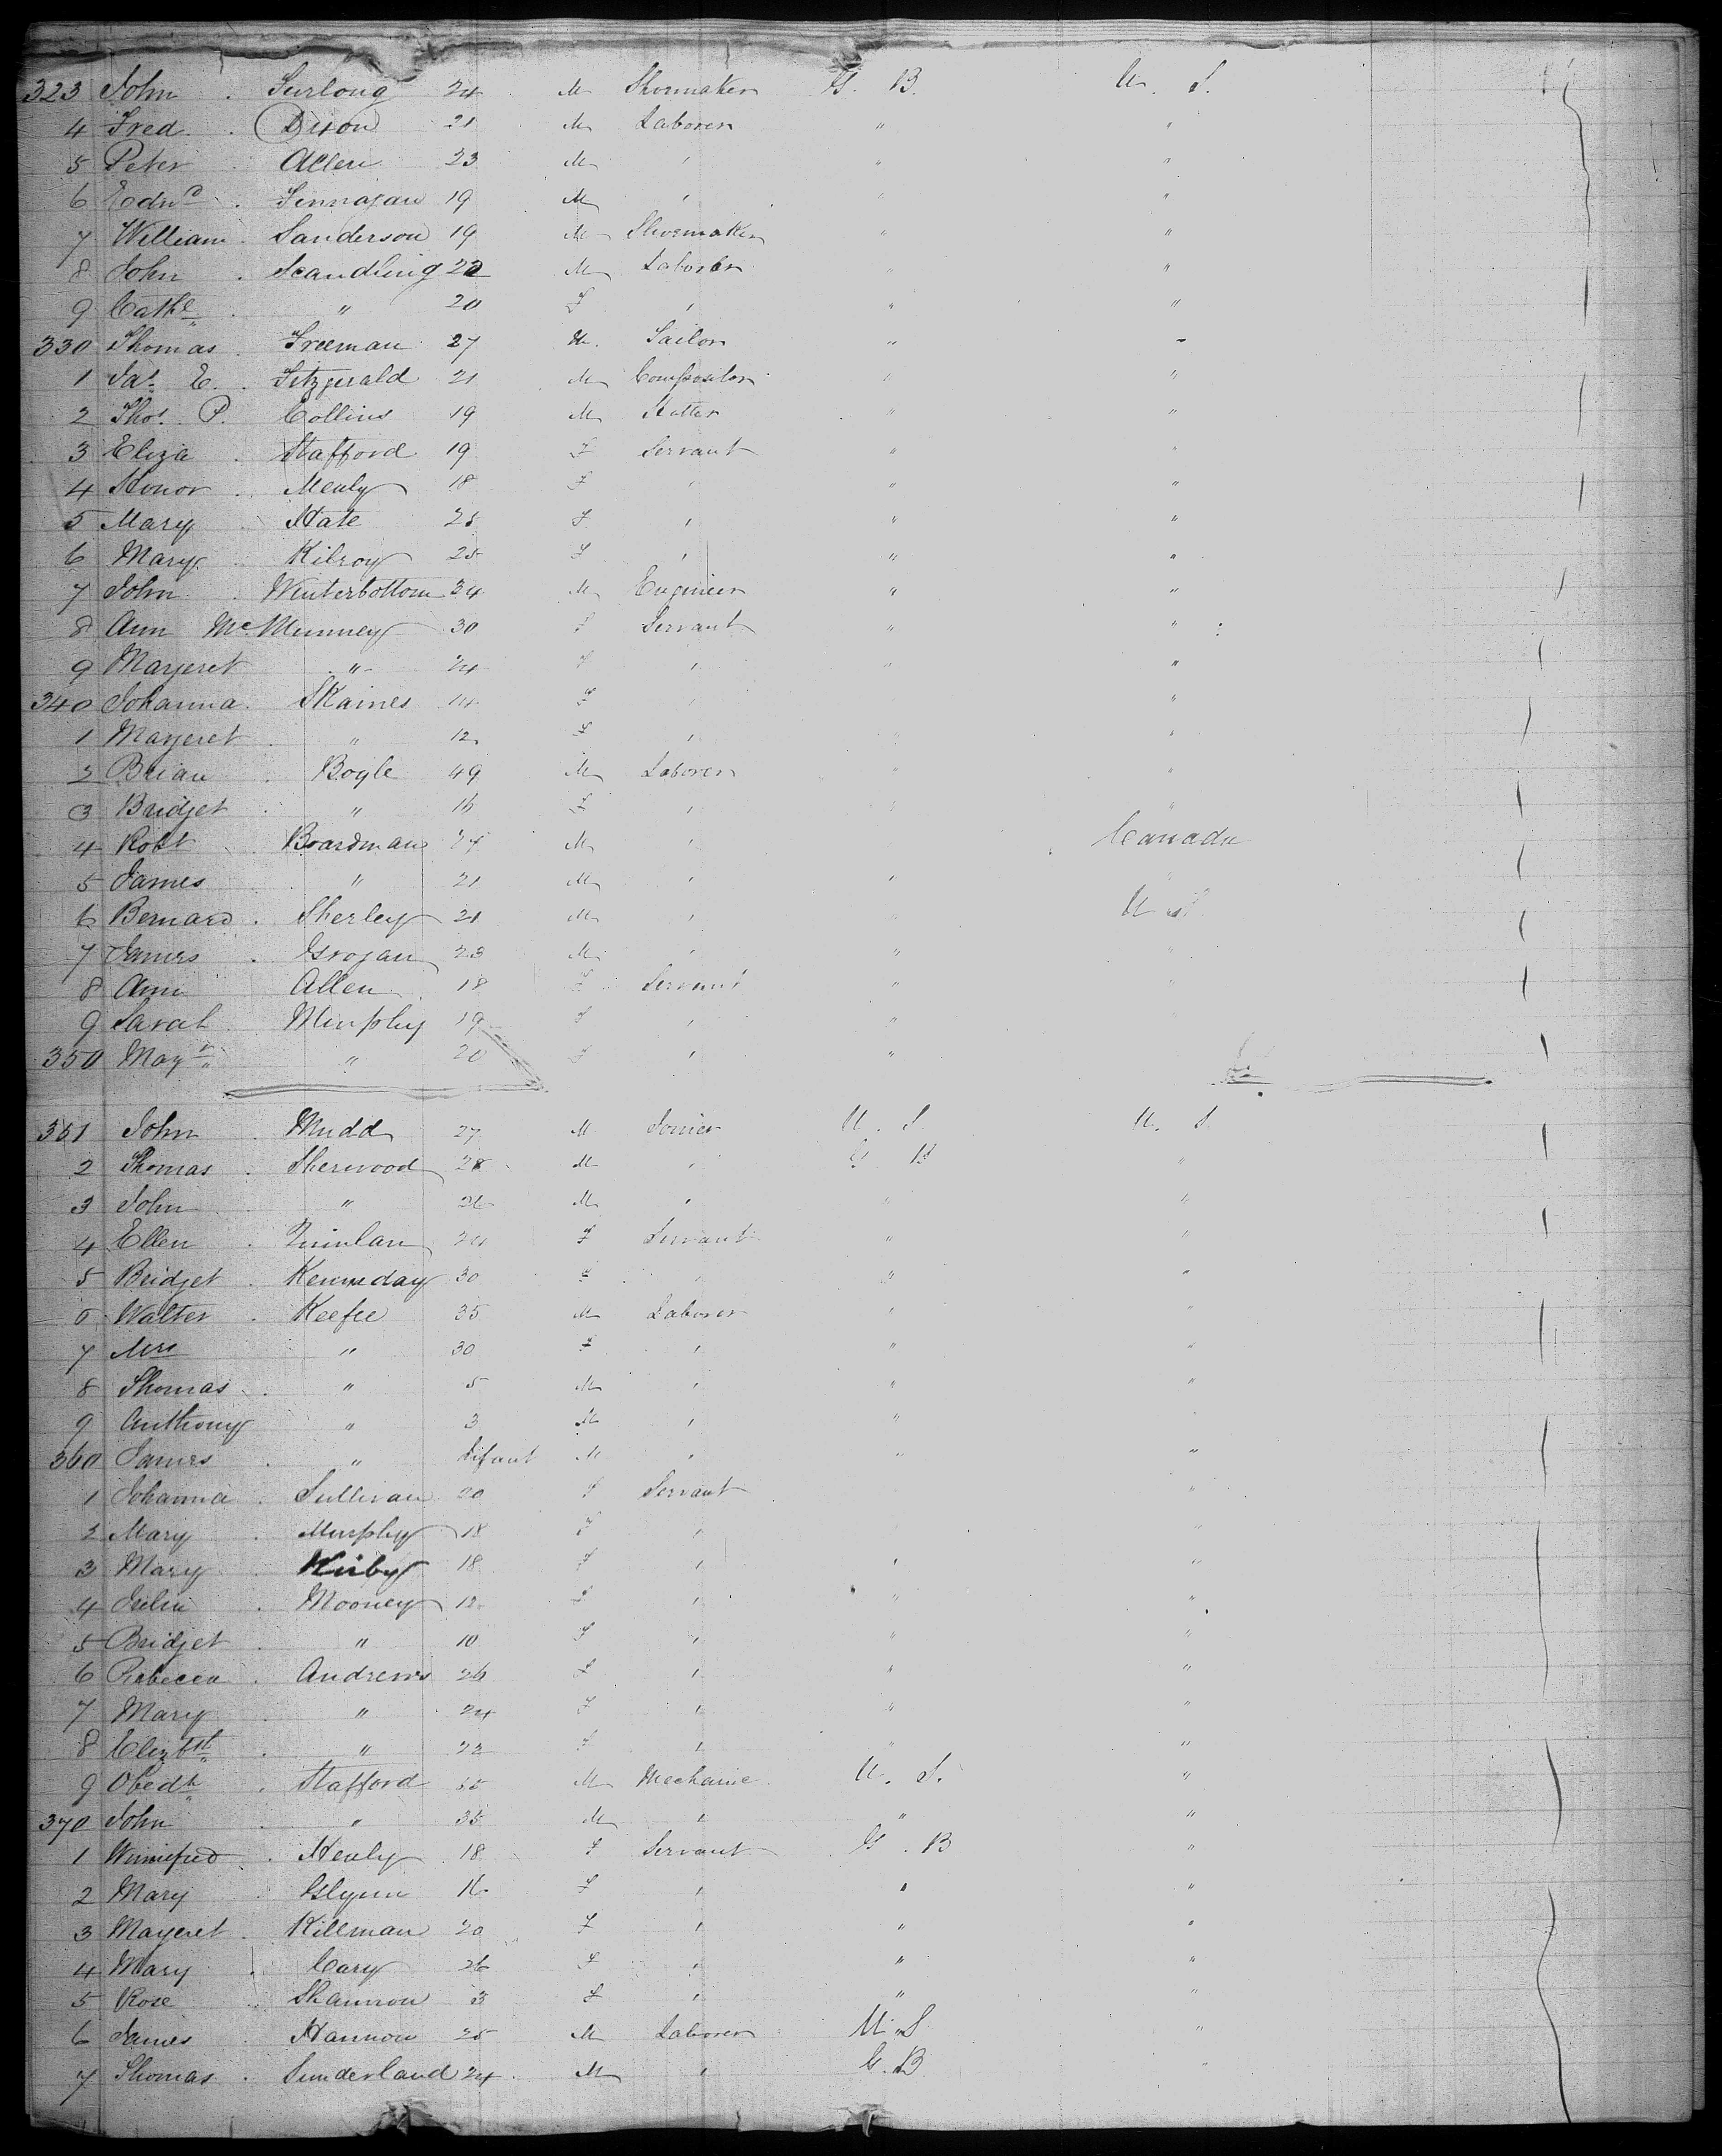 323 John . Furlong 24 M Shoemaker G. B. U. S.
4 Fred. . Dixon 21 M Laborer " "
5 Peter . Allen 23 M " " "
6 Edwd . Finnagan 19 M " " "
7 William . Sanderson 19 M Shoemaker " "
8 John . Scandling 22 M Laborer " "
9 Cathe . " 20 F " " "
330 Thomas . Freeman 27 M. Sailor " "
1 Jas. E. . Fitzgerald 21 M Compositor " "
2 Thos. P. Collins 19 M Hatter " "
3 Eliza . Stafford 19 F Servant " "
4 Honor . Mealy 18 F " " "
5 Mary . Hate 25 F " " "
6 Mary . Kilroy 25 F " " "
7 John . Winterbottom 34 M Engineer " "
8 Ann McMunney 30 F Servant " "
9 Margeret " 24 F " " "
340 Johanna . Skaines 14 F " " "
1 Margeret . " 12 F " " "
2 Brian . Bogle 49 M Laborer " "
3 Bridget . " 16 F " " "
4 Robt . Boardman 24 M " Canada
5 James . " 21 M " " "
6 Bernard . Sherley 21 M " " U S.
7 James . Grogan 23 M " " "
8 Ann Allen 18 F Servant " "
9 Sarah . Murphy 19 F " "
350 Magt " 20 F " "
351 John . Mudd 27 M Joiner U. S. U. S.
2 Thomas . Sherwood 28 M " G B "
3 John . " 26 M " " "
4 Ellen . Quinlan 24 F Servant " "
5 Bridget . Kenneday 30 F " " "
6 Walter . Keefee 35 M Laborer " "
7 Mrs " 30 F " " "
8 Thomas . " 5 M " " "
9 Anthony " 3 M " "
360 James . " Infant M " " "
1 Johanna . Sullivan 20 F Servant "
2 Mary . Murphy 18 F " "
3 Mary . Kirby 18 F " " "
4 Julia . Mooney 12 F " " "
5 Bridget . " 10 F " " "
6 Rabecca . Andrews 26 F " " "
7 Mary . " 24 F " " "
8 Elizbth . " 22 F " " "
9 Obedh . Stafford M Mechanic . U. S. "
370 John . " 35 M " " "
1 Winnefred . Healy 18 F Servant G. B "
2 Mary . Glynn 16 F " " "
3 Mageret . Killman 20 F " " "
4 Mary . Cary 26 F " " "
5 Rose . Shannon 3 F " " "
6 James . Hannon 25 M Laborer U. S "
7 Thomas . Sunderland 24 . M " G. B "